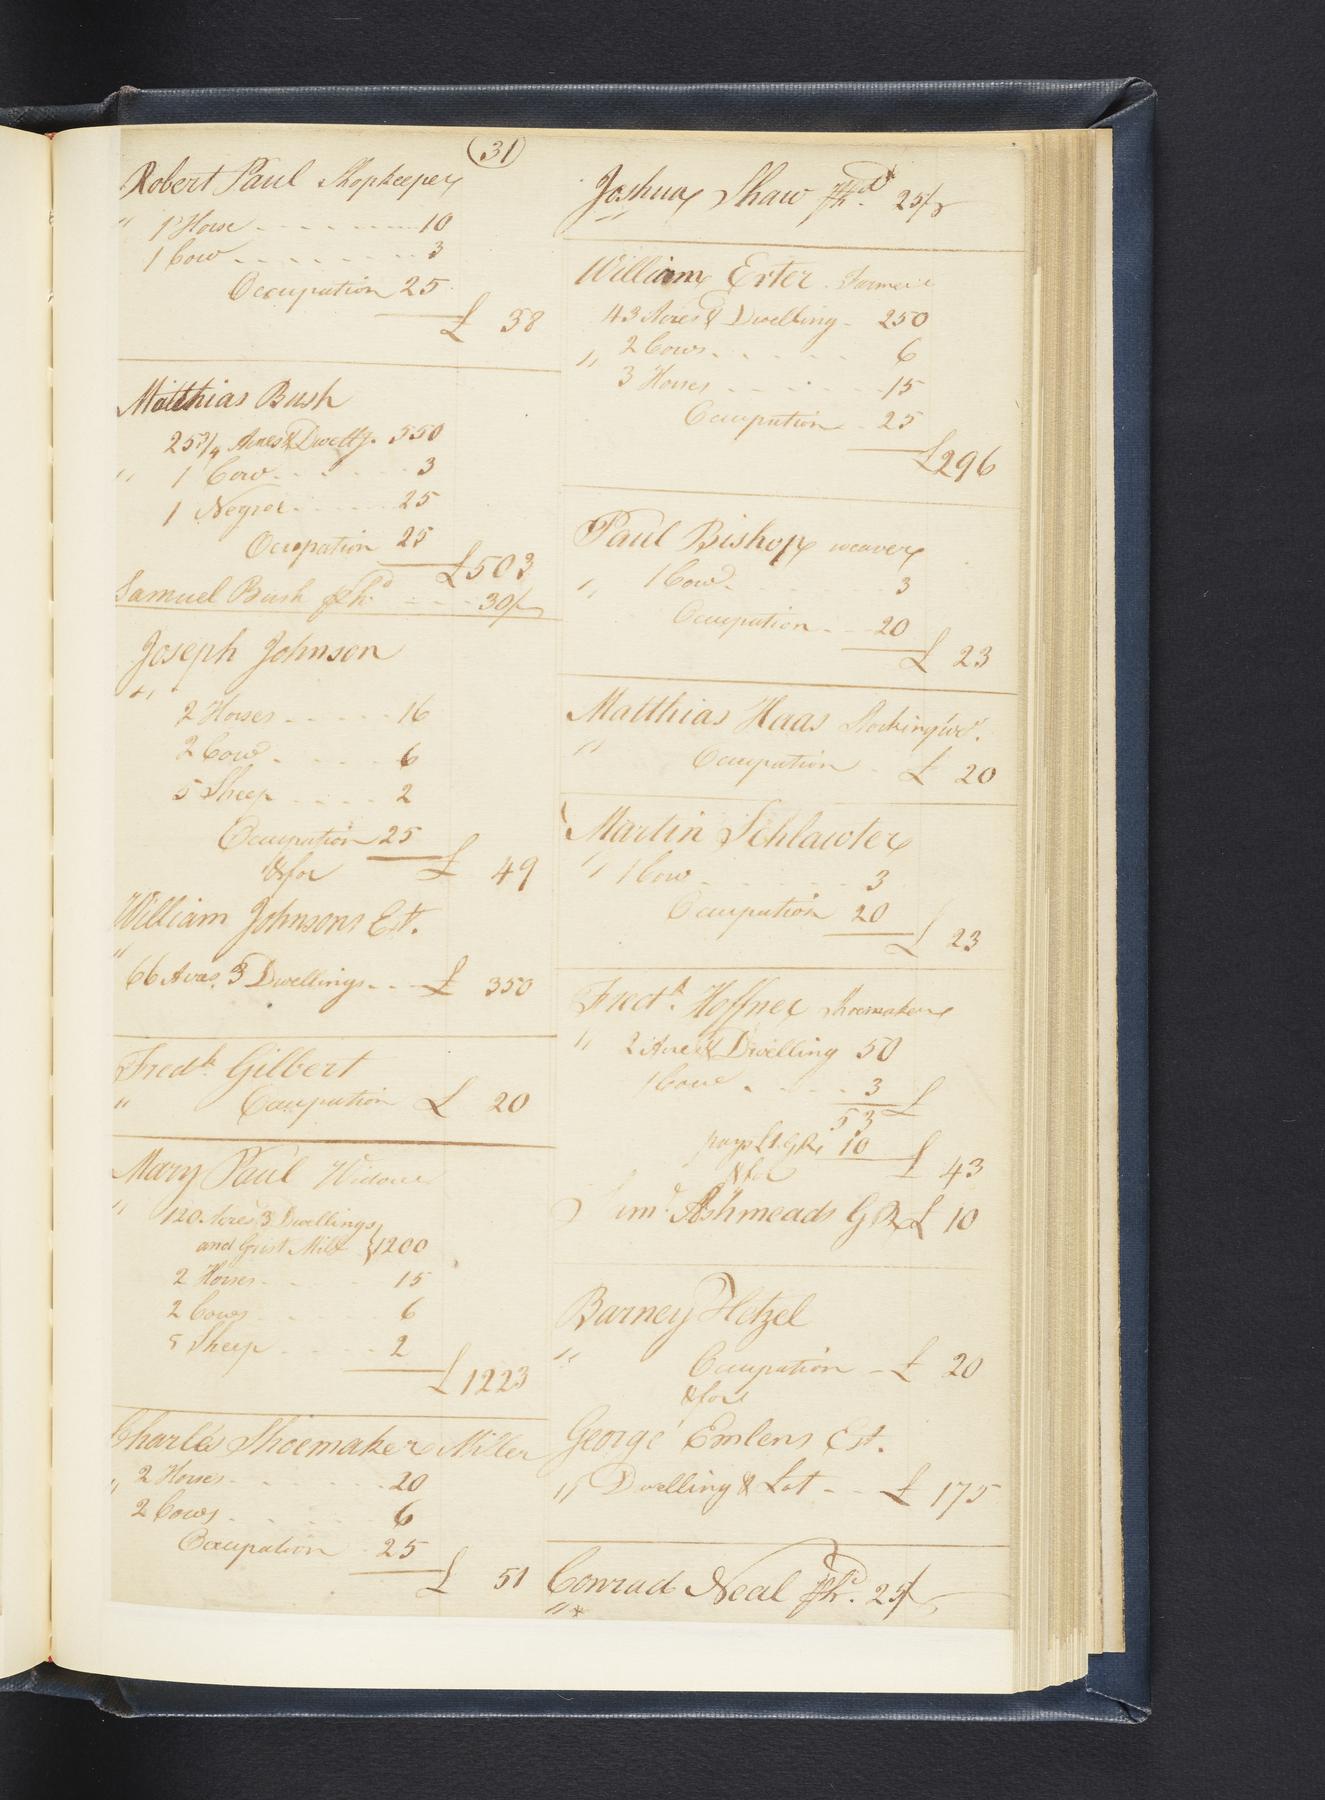 31
Robert Paul Shopkeeper
" 1 Horse - - - - 10
1 Cow - - - - 3
Occupation 25
£ 38
Matthias Bush
25 3/4 Acres & Dwellg. 550
" 1 Cow - - - 3
1 Negroe - - - 25
Occupation 25
£503
Samuel Bush - - - 30/
Joseph Johnson
"
2 Horses - - - - 16
2 Cow - - - - 6
5 Sheep - - - - 2
Occupation 25
£ 49
& for
William Johnsons Est.
"
66 Acres, 3 Dwellings - - £ 350
Fredk. Gilbert
" Occupation £ 20
Mary Paul Widow
" 120 Acres 3 Dwellings
and Grist Mill } 1200
2 Horses - - - 15
2 Cows - - - 6
5 Sheep - - - 2
£1223
Charles Shoemaker Miller
" 2 Horses - - - 20
2 Cows - - - 6
Occupation 25
£ 51
Joshua Shaw 25/
"
William Erter Farmer
43 Acres & Dwelling - 250
" 2 Cows - - - 6
3 Horses - - - 15
Occupation - 25
£296
Paul Bishop weaver
" 1 Cow - - - 3
Occupation - - 20
£ 23
Matthias Haas Stocking wr.
" Occupation - £ 20
Martin Schlawter
" 1 Cow - - - 3
Occupation 20
£ 23
Fredk. Hoffner Shoemaker
" 2 Acres & Dwelling 50
1 Cow - - - 3
£
53
pays £1 G R, 10
£ 43
& for
Ashmeads G R £ 10
Barney Hetzel
" Occupation - £ 20
& for
George Emlens Est.
" Dwelling & Lot - - £ 175
Conrad Neal 25/
" *